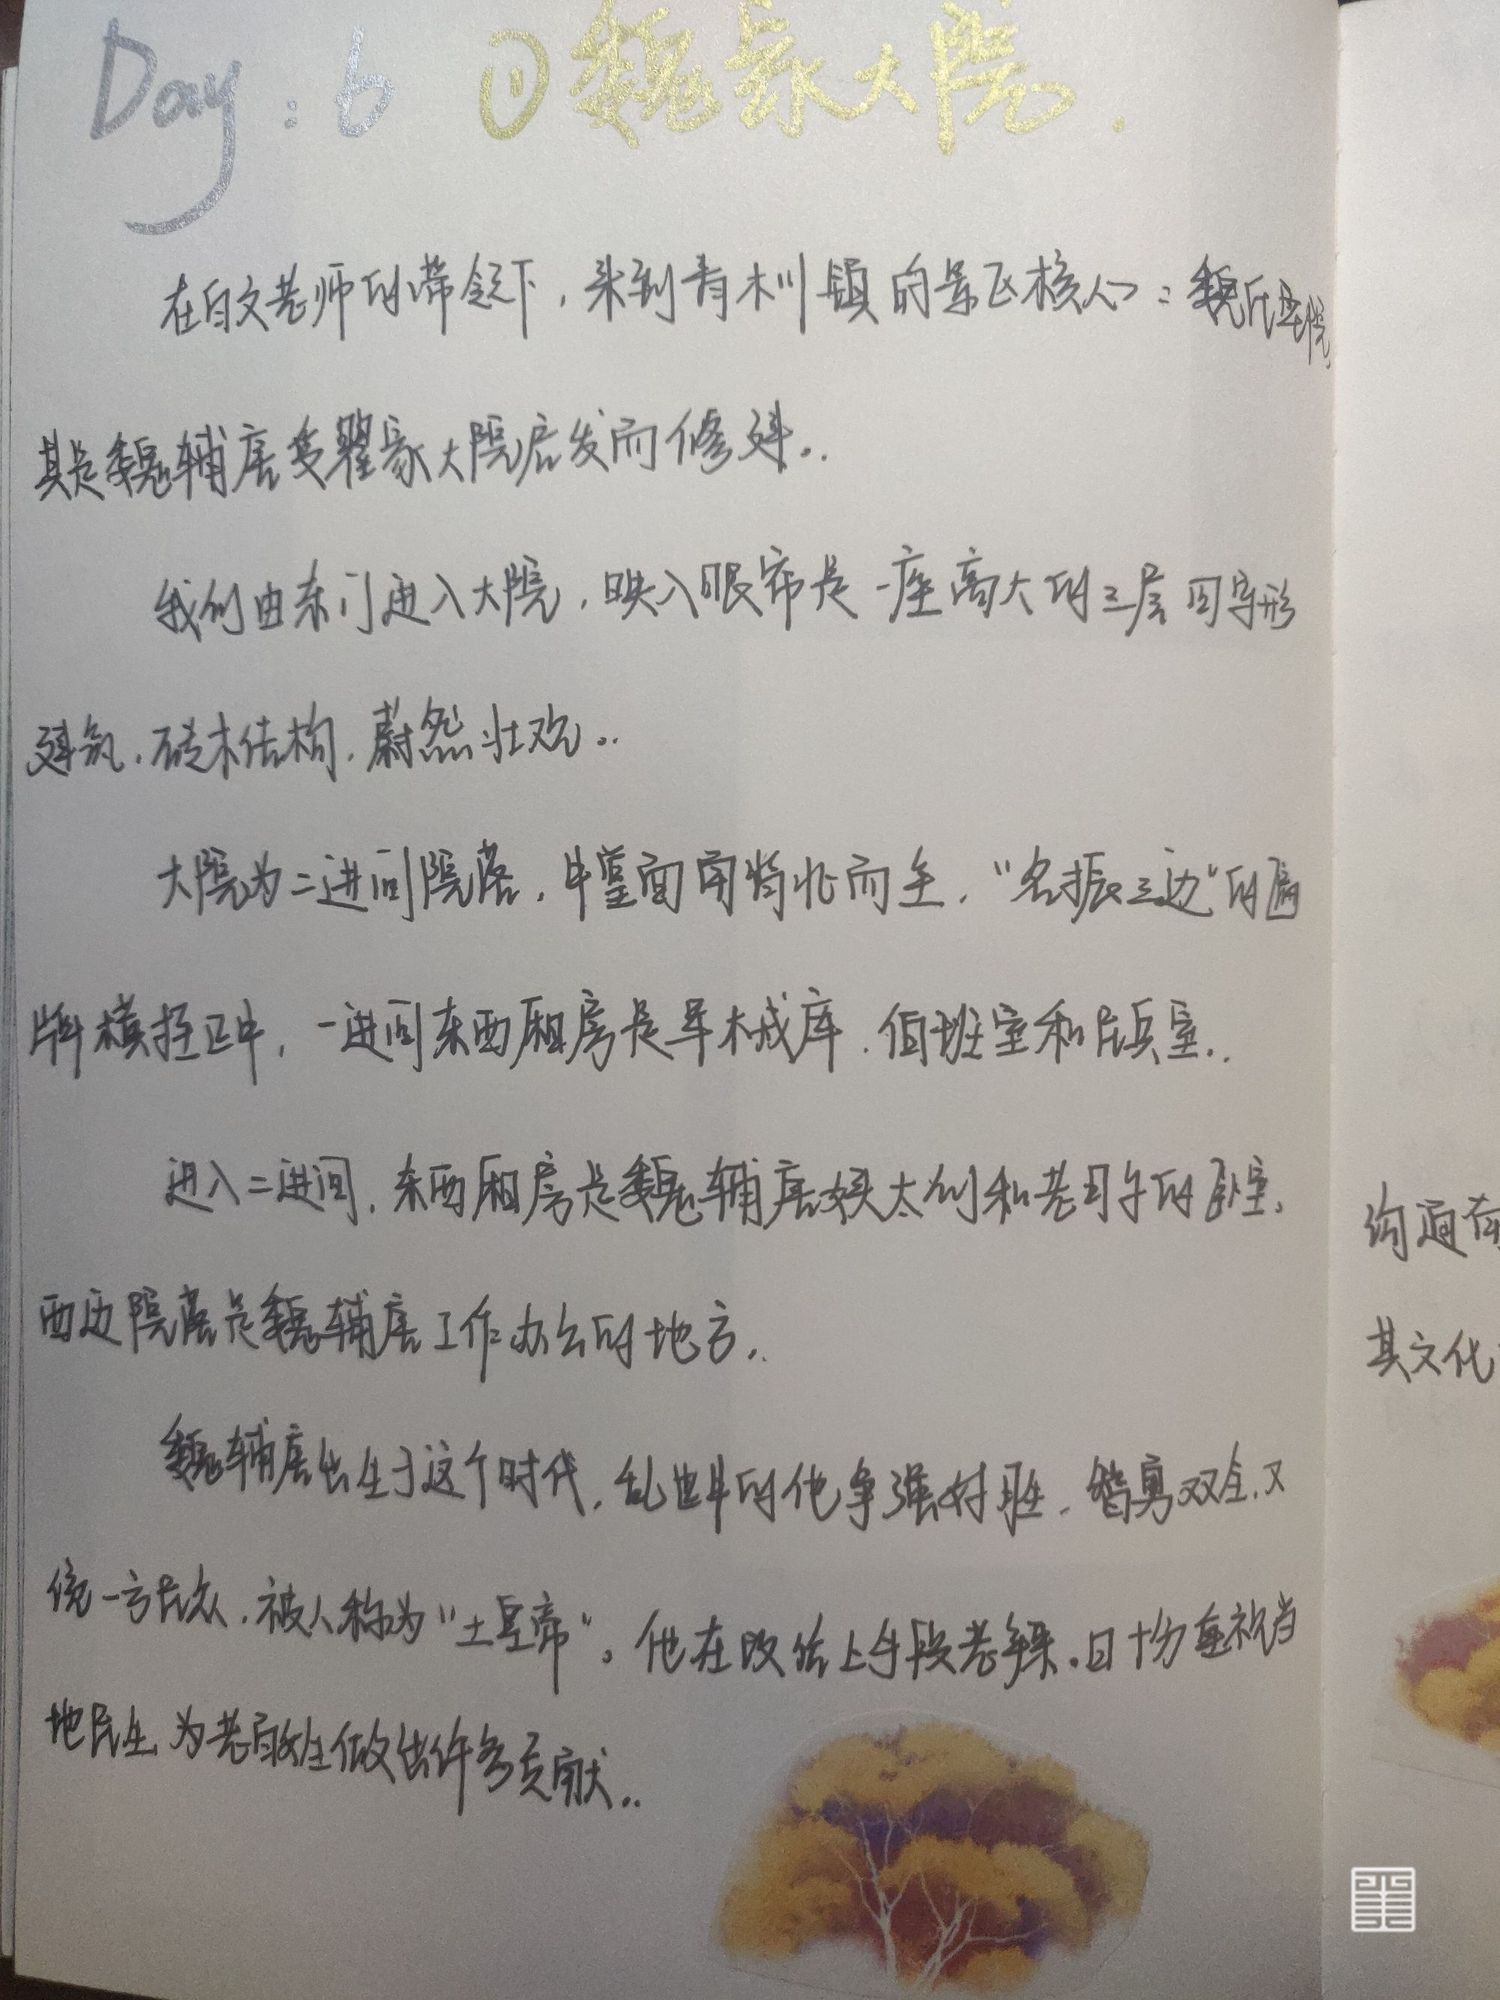 Day：6 ①魏家大院．
在白文老师的带领下，来到青木川镇的景区核心：魏氏宅院，
其是魏辅唐受瞿家大院启发而修建。
我们由东门进入大院，映入眼帘是一座高大的三层回字形
建筑，砖木结构，蔚然壮观。
大院为二进间院落，中堂面南背北而坐，“名振三边”的匾
牌横挂正中，一进间东西厢房是军械库、值班室和民兵室。
进入二进间，东西厢房是魏辅唐姨太们和老母子的卧室，
西边院落是魏辅唐工作办公的地方。
魏辅唐出生于这个时代，乱世中的他争强好胜、智勇双全，又
统一方民众，被人称为“土皇帝”。他在政治上手段老辣，且十分重视当
地民生，为老百姓做出许多贡献。
沟通
其文化